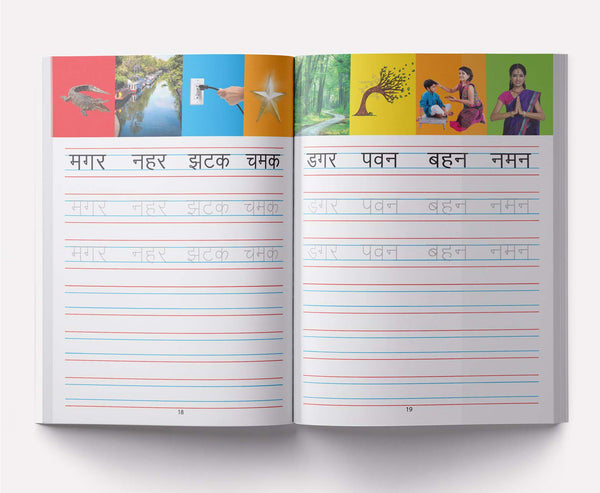 मगर नहर झटक चमक
मगर नहर झटक चमक
मगर नहर झटक चमक
18
डगर पवन बहन नमन
डगर पवन बहन नमन
डगर पवन बहन नमन
19